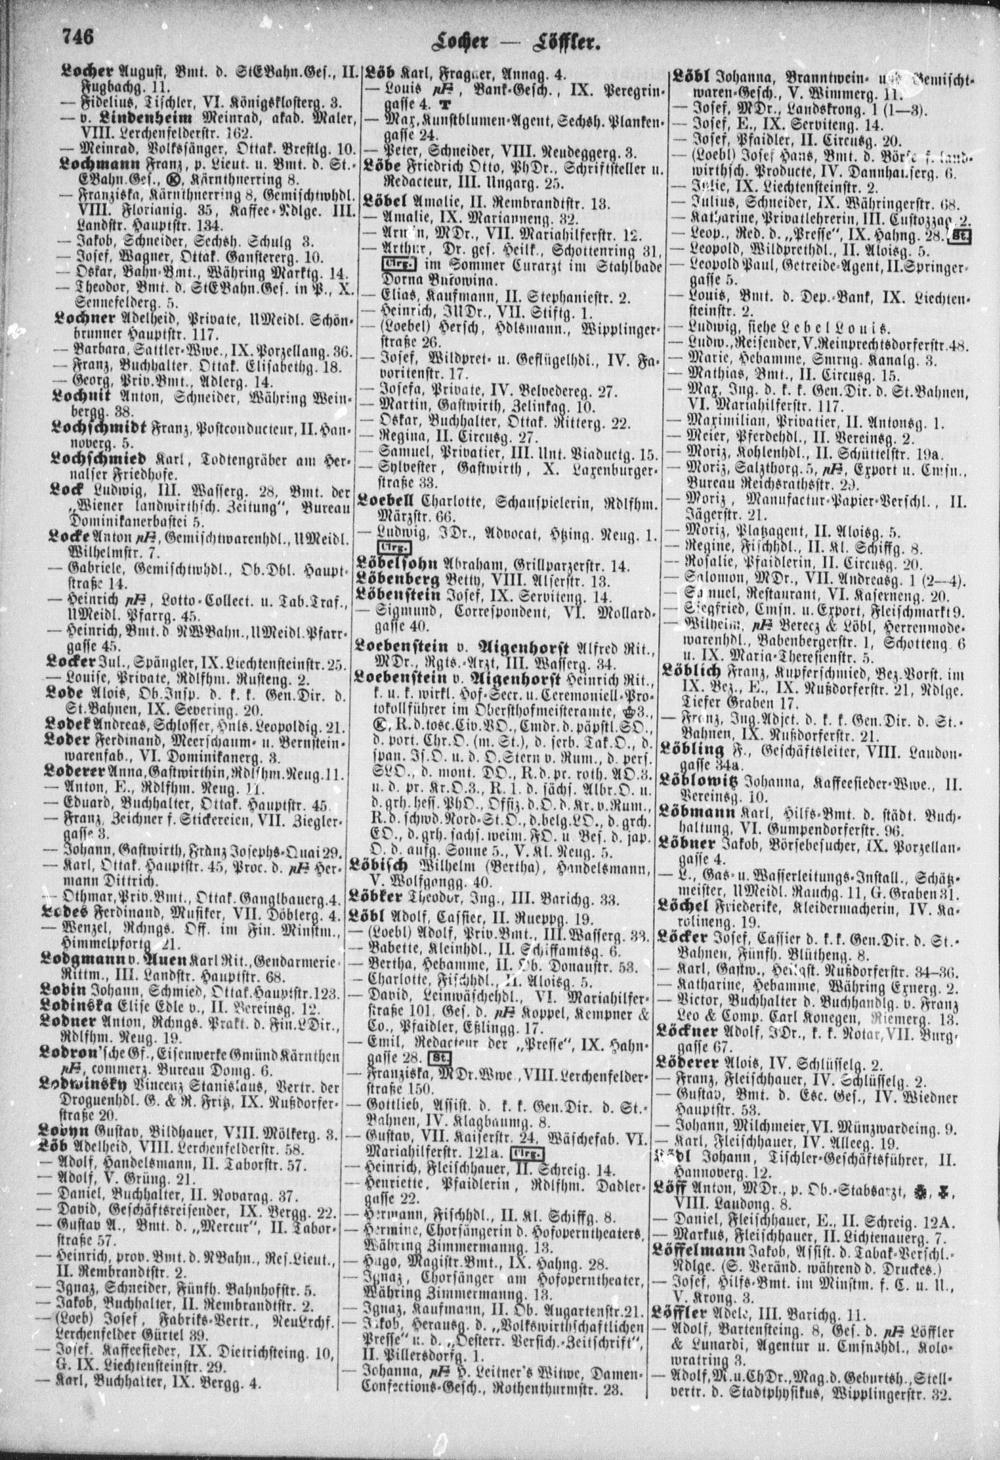 746
Locher — Löffler.
Locher August, Bmt. d. StEBahn.Ges., II.
Fugbachg. 11.
— Fidelius, Tischler, VI. Königsklosterg. 3.
— v. Lindenheim Meinrad, akad. Maler,
VIII. Lerchenfelderstr. 162.
— Meinrad, Volksänger, Ottak. Brestlg. 10.
Lochmann Franz, p. Lieut. u. Bmt. d. St.-
EBahn.Ges., Kärnthnerring 8.
— Franziska, Kärnthnerring 8, Gemischtwhdl.
VIII. Florianig. 35, Kaffee-Ndlge. III.
Landstr. Hauptstr. 134.
— Jakob, Schneider, Sechsh. Schulg 3.
— Josef, Wagner, Ottak. Ganstererg. 10.
— Oskar, Bahn-Bmt., Währing Marktg. 14.
— Theodor, Bmt. d. StEBahn.Ges. in P., X.
Sennefelderg. 5.
Lochner Adelheid, Private, UMeidl. Schön-
brunner Hauptstr. 117.
— Barbara, Sattler-Wwe., IX. Porzellang. 36.
— Franz, Buchhalter, Ottak. Elisabethg. 18.
— Georg, Priv.Bmt., Adlerg. 14.
Lochnit Anton, Schneider, Währing Wein-
bergg. 38.
Lochschmidt Franz, Postconducteur, II. Han-
noverg. 5.
Lochschmied Karl, Todtengräber am Her-
nalser Friedhofe.
Lock Ludwig, III. Wasserg. 28, Bmt. der
„Wiener landwirthsch. Zeitung“, Bureau
Dominikanerbastei 5.
Locke Anton, Gemischtwarenhdl., UMeidl.
Wilhelmstr. 7.
— Gabriele, Gemischtwhdl., Ob.Dbl. Haupt-
straße 14.
— Heinrich, Lotto-Collect. u. Tab.Traf.,
UMeidl. Pfarrg. 45.
— Heinrich, Bmt. d. NWBahn., UMeidl. Pfarr-
gasse 45.
Locker Jul., Spängler, IX. Liechtensteinstr. 25.
— Louise, Private, Rdlfhm. Rusteng. 2.
Lode Alois, Ob.Insp. d. k. k. Gen.Dir. d.
St.Bahnen, IX. Severing. 20.
Lodek Andreas, Schlosser, Hnls. Leopoldig. 21.
Loder Ferdinand, Meerschaum- u. Bernstein-
warenfab., VI. Dominikanerg. 3.
Loderer Anna, Gastwirthin, Rdlfhm. Neug. 11.
— Anton, E., Rdlfhm. Neug. 11.
— Eduard, Buchhalter, Ottak. Hauptstr. 45.
— Franz, Zeichner f. Stickereien, VII. Ziegler-
gasse 3.
— Johann, Gastwirth, Franz Josephs-Quai 29.
— Karl, Ottak. Hauptstr. 45, Proc. d. Her-
mann Dittrich.
— Othmar, Priv.Bmt., Ottak. Ganglbauerg. 4.
Lodes Ferdinand, Musiker, VII. Döblerg. 4.
— Wenzel, Rchngs. Off. im Fin. Minstm.,
Himmelpfortg 21.
Lodgmann v. Auen Karl Rit., Gendarmerie-
Rittm., III. Landstr. Hauptstr. 68.
Lodin Johann, Schmied, Ottak. Hauptstr. 123.
Lodinska Elise Edle v., II. Vereinsg. 12.
Lodner Anton, Rchngs. Prakt. d. Fin.LDir.,
Rdlfhm. Neug. 19.
Lodron'sche Gf., Eisenwerke Gmünd Kärnthen
commerz. Bureau Domg. 6.
Lodwinsky Vincenz Stanislaus, Vertr. der
Droguenhdl. G. & R. Fritz, IX. Nußdorfer-
straße 20.
Lodyn Gustav, Bildhauer, VIII. Mölkerg. 3.
Löb Adelheid, VIII. Lerchenfelderstr. 58.
— Adolf, Handelsmann, II. Taborstr. 57.
— Adolf, V. Grüng. 21.
— Daniel, Buchhalter, II. Novarag. 37.
— David, Geschäftsreisender, IX. Bergg. 22.
— Gustav A., Bmt. d. „Mercur“, II. Tabor-
straße 57.
— Heinrich, prov. Bmt. d. NBahn., Res.Lieut.,
II. Rembrandtstr. 2.
— Ignaz, Schneider, Fünfh. Bahnhofstr. 5.
— Jakob, Buchhalter, II. Rembrandtstr. 2.
— (Loeb) Josef, Fabriks-Vertr., NeuLrchf.
Lerchenfelder Gürtel 39.
— Josef. Kaffeesieder, IX. Dietrichsteing. 10,
G. IX. Liechtensteinstr. 29.
— Karl, Buchhalter, IX. Bergg. 4.
Löb Karl, Fragner, Annag. 4.
— Louis, Bank-Gesch., IX. Peregrin-
gasse 4.
— Max, Kunstblumen-Agent, Sechsh. Planken-
gasse 24.
— Peter, Schneider, VIII. Neudeggerg. 3.
Löbe Friedrich Otto, PhDr., Schriftsteller u.
Redacteur, III. Ungarg. 25.
Löbel Amalie, II. Rembrandtstr. 13.
— Amalie, IX. Marianneng. 32.
— MDr., VII. Mariahilferstr. 12.
— Arthur, Dr. ges. Heilk., Schottenring 31,
Clrg. im Sommer Curarzt im Stahlbade
Dorna Bukowina.
— Elias, Kaufmann, II. Stephaniestr. 2.
— Heinrich, JUDr., VII. Stiftg. 1.
— (Loebel) Hersch, Hdlsmann., Wipplinger-
straße 26.
— Josef, Wildpret- u. Geflügelhdl., IV. Fa-
voritenstr. 17.
— Josefa, Private, IV. Belvedereg. 27.
— Martin, Gastwirth, Zelinkag. 10.
— Oskar, Buchhalter, Ottak. Ritterg. 22.
— Regina, II. Circusg. 27.
— Samuel, Privatier, III. Unt. Viaductg. 15.
— Sylvester, Gastwirth, X. Laxenburger-
straße 33.
Loebell Charlotte, Schauspielerin, Rdlfhm.
Märzstr. 66.
— Ludwig, JDr., Advocat, Htzing. Neug. 1.
Clrg.
Löbelsohn Abraham, Grillparzerstr. 14.
Löbenberg Betty, VIII. Alserstr. 13.
Löbenstein Josef, IX. Serviteng. 14.
— Sigmund, Correspondent, VI. Mollard-
gasse 40.
Loebenstein v. Aigenhorst Alfred Rit.,
MDr., Rgts.-Arzt, III. Wasserg. 34.
Loebenstein v. Aigenhorst Heinrich Rit.,
k. u. k. wirkl. Hof-Secr. u. Ceremoniell-Pro-
tokollführer im Obersthofmeisteramte, 3.,
R.d.tosc.Civ.VO., Cmdr. d. päpstl. SO.,
d. port. Chr.O. (m. St.), d. serb. Tak.O., d.
span. Is.O. u. d. O.Stern v. Rum., d. pers.
SLO., d. mont. DO., R.d. pr. roth. AO.3.
u. d. pr. Kr.O.3., R. 1. d. sächs. Albr.O. u.
d. grh. hess. PhO., Offiz. d.O.d. Kr. v. Rum.,
R.d. schwd. Nord-St.O., d. belg. LO., d. grch.
EO., d. grh. sachs. weim. FO. u. Bes. d. jap.
O. d. aufg. Sonne 5., V. Kl. Neug. 5.
Löbisch Wilhelm (Bertha), Handelsmann,
V. Wolfgangg. 40.
Löbker Theodor, Ing., III. Barichg. 33.
Löbl Adolf, Cassier, II. Rueppg. 19.
— (Loebl) Adolf, Priv.Bmt., III. Wasserg. 33.
— Babette, Kleinhdl., II. Schiffamtsg. 6.
— Bertha, Hebamme, II. Ob. Donaustr. 53.
— Charlotte, Fischhdl., II. Aloisg. 5.
— David, Leinwäschehdl., VI. Mariahilfer-
straße 101, Ges. d. Koppel, Kempner &
Co., Pfaidler, Eßlingg. 17.
— Emil, Redacteur der „Presse“, IX. Hahn-
gasse 28. St.
— Franziska, MDr. Wwe., VIII. Lerchenfelder-
straße 150.
— Gottlieb, Assist. d. k. k. Gen.Dir. d. St.-
Bahnen, IV. Klagbaumg. 8.
— Gustav, VII. Kaiserstr. 24, Wäschefab. VI.
Mariahilferstr. 121a. Clrg.
— Heinrich, Fleischhauer, II. Schreig. 14.
— Henriette, Pfaidlerin, Rdlfhm. Dadler-
gasse 22.
— Hermann, Fischhdl., II. Kl. Schiffg. 8.
— Hermine, Chorsängerin d. Hofoperntheaters,
Währing Zimmermanng. 13.
— Hugo, Magistr.Bmt., IX. Hahng. 28.
— Ignaz, Chorsänger am Hofoperntheater,
Währing Zimmermanng. 13.
— Ignaz, Kaufmann, II. Ob. Augartenstr. 21.
— Jakob, Herausg. d. „Volkswirthschaftlichen
Presse“ u. d. „Oesterr. Versich.-Zeitschrift“,
II. Pillersdorfg. 1.
— Johanna, H. Leitner's Witwe, Damen-
Confections-Gesch., Rothenthurmstr. 23.
Löbl Johanna, Branntwein- und Gemischt-
waren-Gesch., V. Wimmerg. 11.
— Josef, MDr., Landskrong. 1 (1—3).
— Josef, E., IX. Serviteng. 14.
— Josef, Pfaidler, II. Circusg. 20.
— (Loebl) Josef Hans, Bmt. d. Börse f. land-
wirthsch. Producte, IV. Dannhauserg. 6.
— Julie, IX. Liechtensteinstr. 2.
— Julius, Schneider, IX. Währingerstr. 68.
— Katharine, Privatlehrerin, III. Custozzag. 2.
— Leop., Red. d. „Presse“, IX. Hahng. 28. St.
— Leopold, Wildprethdl., II. Aloisg. 5.
— Leopold Paul, Getreide-Agent, II. Springer-
gasse 5.
— Louis, Bmt. d. Dep.-Bank, IX. Liechten-
steinstr. 2.
— Ludwig, siehe Lebel Louis.
— Ludw., Reisender, V. Reinprechtsdorferstr. 48.
— Marie, Hebamme, Smrng. Kanalg. 3.
— Mathias, Bmt., II. Circusg. 15.
— Max, Ing. d. k. k. Gen.Dir. d. St.Bahnen,
VI. Mariahilferstr. 117.
— Maximilian, Privatier, II. Antonsg. 1.
— Meier, Pferdehdl., II. Vereinsg. 2.
— Moriz, Kohlenhdl., II. Schüttelstr. 19a.
— Moriz, Salzthorg. 5, Export u. Cmsn.,
Bureau Reichsrathsstr. 29.
— Moriz, Manufactur-Papier-Verschl., II.
Jägerstr. 21.
— Moriz, Platzagent, II. Aloisg. 5.
— Regine, Fischhdl., II. Kl. Schiffg. 8.
— Rosalie, Pfaidlerin, II. Circusg. 20.
— Salomon, MDr., VII. Andreasg. 1 (2—4).
— Samuel, Restaurant, VI. Kaserneng. 20.
— Siegfried, Cmsn. u. Export, Fleischmarkt 9.
— Wilhelm, Berecz & Löbl, Herrenmode-
warenhdl., Babenbergerstr. 1, Schotteng. 6
u. IX. Maria-Theresienstr. 5.
Löblich Franz, Kupferschmied, Bez.Vorst. im
IX. Bez., E., IX. Nußdorferstr. 21, Ndlge.
Tiefer Graben 17.
— Franz, Ing.Adjct. d. k. k. Gen.Dir. d. St.-
Bahnen, IX. Nußdorferstr. 21.
Löbling F., Geschäftsleiter, VIII. Laudon-
gasse 34a.
Löblowitz Johanna, Kaffeesieder-Wwe., II.
Vereinsg. 10.
Löbmann Karl, Hilfs-Bmt. d. städt. Buch-
haltung, VI. Gumpendorferstr. 96.
Löbner Jakob, Börsebesucher, IX. Porzellan-
gasse 4.
— L., Gas- u. Wasserleitungs-Install., Schätz-
meister, UMeidl. Rauchg. 11, G. Graben 31.
Löchel Friederike, Kleidermacherin, IV. Ka-
rolineng. 19.
Löcker Josef, Cassier d. k. k. Gen.Dir. d. St.-
Bahnen, Fünfh. Blütheng. 8.
— Karl, Gastw., Heilgst. Nußdorferstr. 34—36.
— Katharine, Hebamme, Währing Exnerg. 2.
— Victor, Buchhalter d. Buchhandlg. v. Franz
Leo & Comp. Carl Konegen, Riemerg. 13.
Löckner Adolf, JDr., k. k. Notar, VII. Burg-
gasse 67.
Löderer Alois, IV. Schlüsselg. 2.
— Franz, Fleischhauer, IV. Schlüsselg. 2.
— Gustav, Bmt. d. Esc. Ges., IV. Wiedner
Hauptstr. 53.
— Johann, Milchmeier, VI. Münzwardeing. 9.
— Karl, Fleischhauer, IV. Alleeg. 19.
Johann, Tischler-Geschäftsführer, II.
Hannoverg. 12.
Löff Anton, MDr., p. Ob.-Stabsarzt,
VIII. Laudong. 8.
— Daniel, Fleischhauer, E., II. Schreig. 12A.
— Markus, Fleischhauer, II. Lichtenauerg. 7.
Löffelmann Jakob, Assist. d. Tabak-Verschl.-
Ndlge. (S. Veränd. während d. Druckes.)
— Josef, Hilfs-Bmt. im Minstm. f. C. u. U.,
V. Krong. 3.
Löffler Adele, III. Barichg. 11.
— Adolf, Bartensteing. 8, Ges. d. Löffler
& Lunardi, Agentur u. Cmsnshdl., Kolo-
wratring 3.
— Adolf, M.u.ChDr., Mag.d. Geburtsh., Stell-
vertr. d. Stadtphysikus, Wipplingerstr. 32.